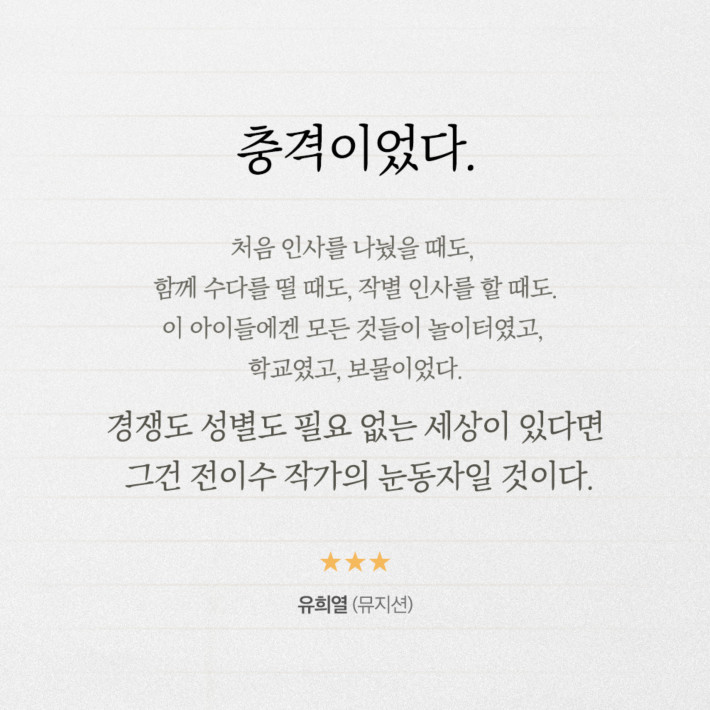 충격이었다.
처음 인사를 나눴을 때도,
함께 수다를 떨 때도, 작별 인사를 할 때도.
이 아이들에겐 모든 것들이 놀이터였고,
학교였고, 보물이었다.
경쟁도 성별도 필요 없는 세상이 있다면
그건 전이수 작가의 눈동자일 것이다.
★★★
유희열 (뮤지션)